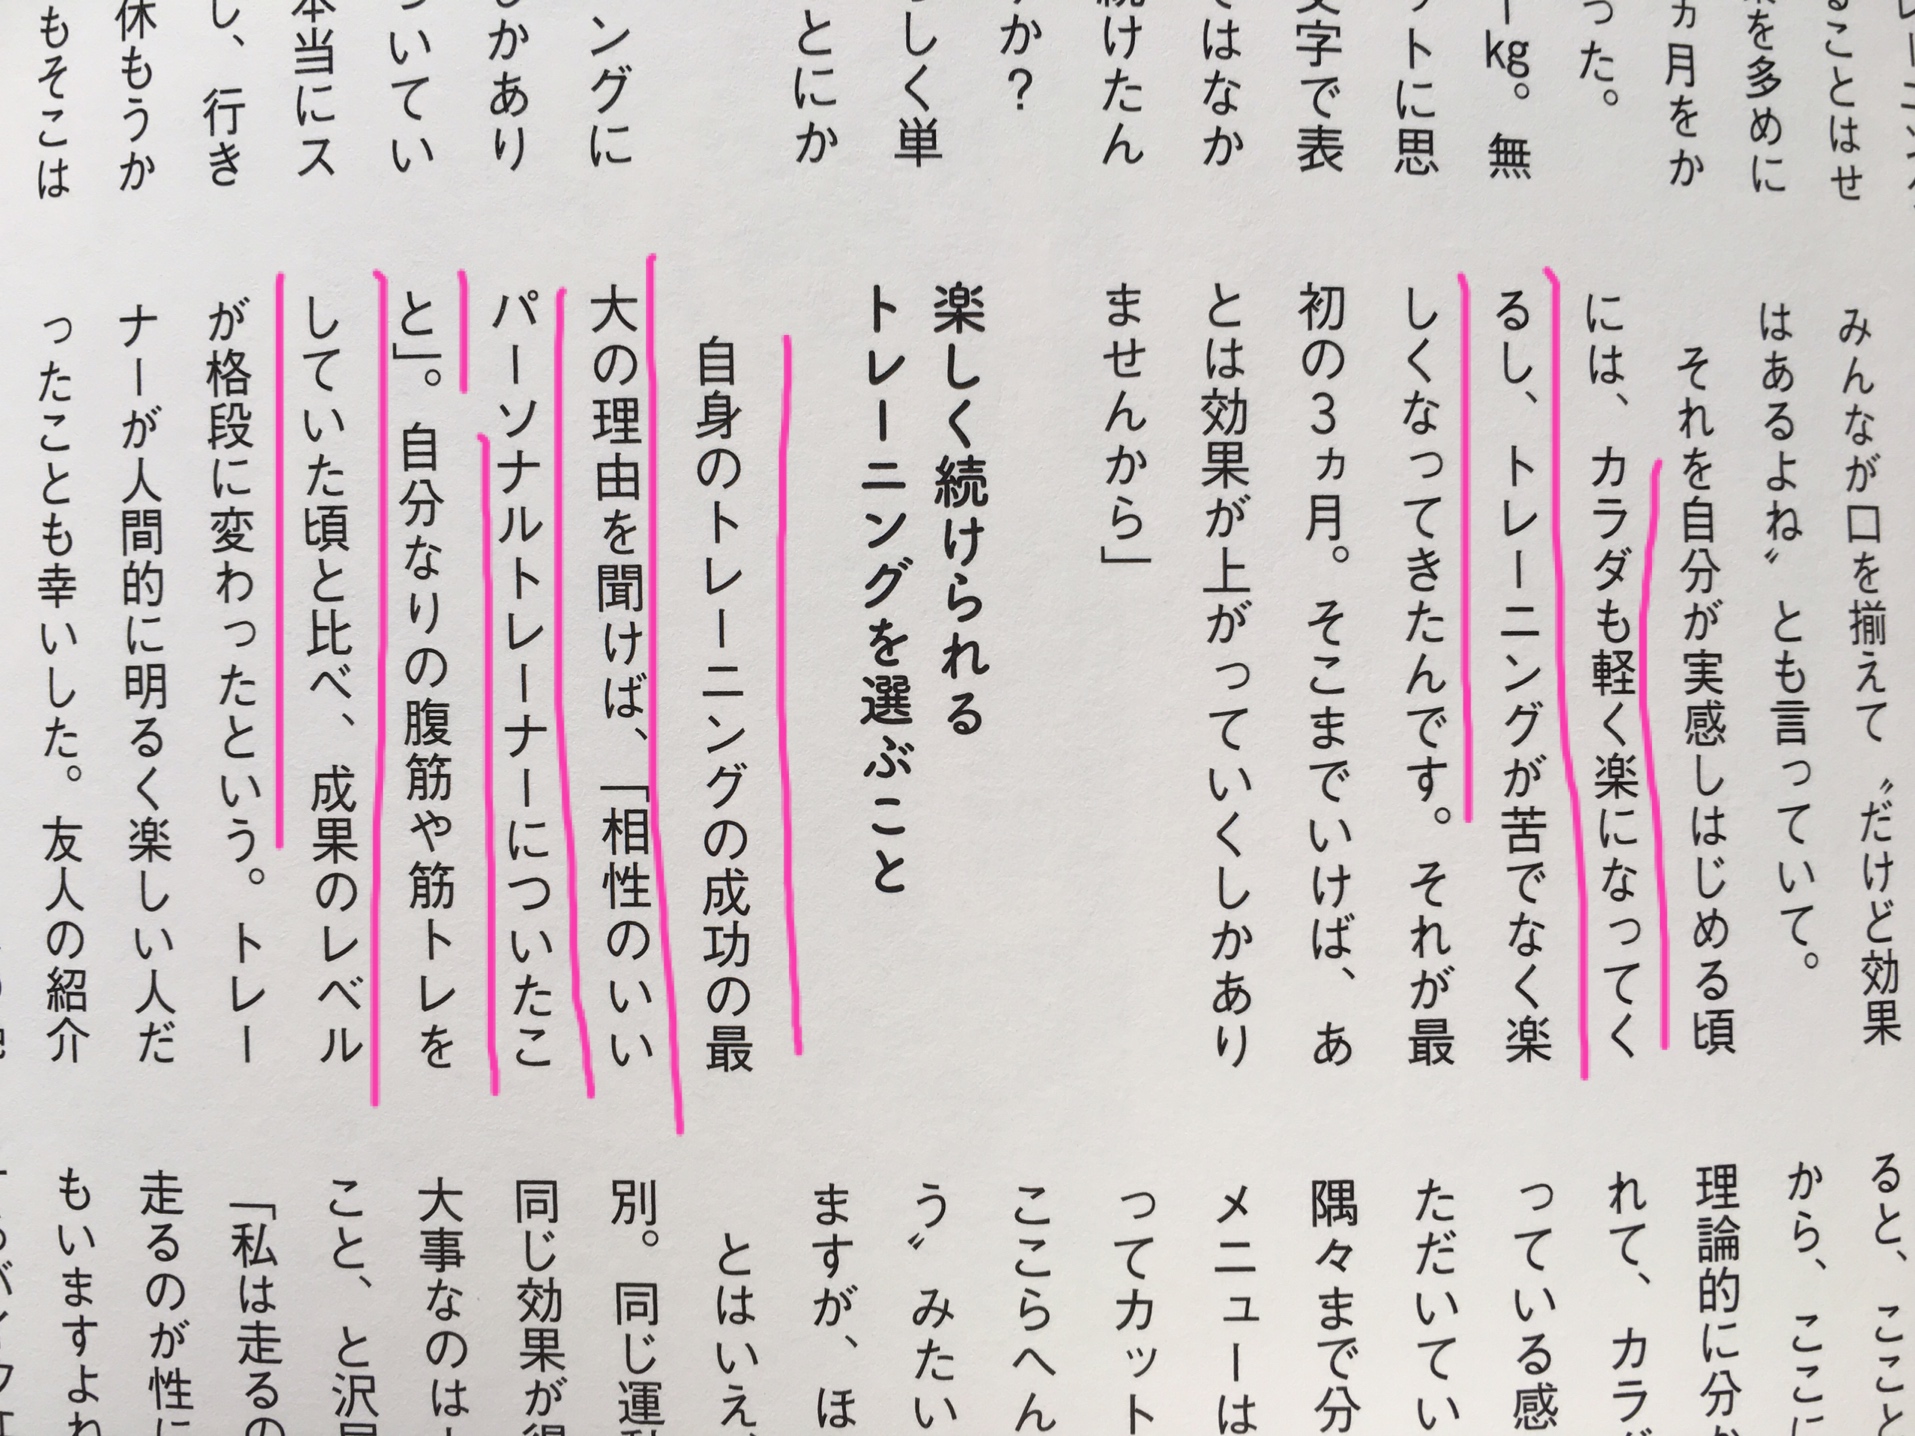 ることはせ
を多めに
ヵ月をか
った。
kg。無
ットに思
文字で表
ではなか
続けたん
か？
しく単
とにか
ングに
かあり
いてい
本当にス
し、行き
休もうか
もそこは
みんなが口を揃えて〝だけど効果
はあるよね〟とも言っていて。
それを自分が実感しはじめる頃
には、カラダも軽く楽になってく
るし、トレーニングが苦でなく楽
しくなってきたんです。それが最
初の3ヵ月。そこまでいけば、あ
とは効果が上がっていくしかあり
ませんから」
楽しく続けられる
トレーニングを選ぶこと
自身のトレーニングの成功の最
大の理由を聞けば、「相性のいい
パーソナルトレーナーについたこ
と」。自分なりの腹筋や筋トレを
していた頃と比べ、成果のレベル
が格段に変わったという。トレー
ナーが人間的に明るく楽しい人だ
ったことも幸いした。友人の紹介
ると、こと
から、ここに
理論的に分か
れて、カラダ
っている感
ただいてい
隅々まで分
メニューは
ってカット
ここらへん
う〟みたい
ますが、ほ
とはいえ、
別。同じ運
同じ効果が得
大事なのは
こと、と沢
「私は走るの
走るのが性に
もいますよね